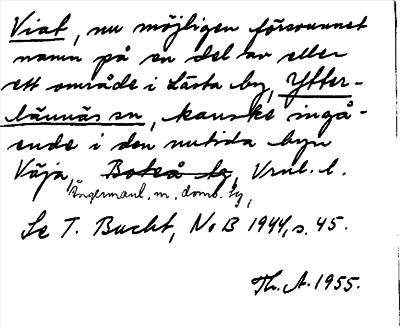 Viat, nu möjligen försvunnet
namn på en del av eller
ett område i Lästa by, Ytter-
lännäs sn, kanske ingå-
ende i den nutida byn
Väja, Boteå tg, Vnl. l.
Ångermanl. m. doms. tg,
Se T. Bucht, NoB 1944, s. 45.
Th. A. 1955.